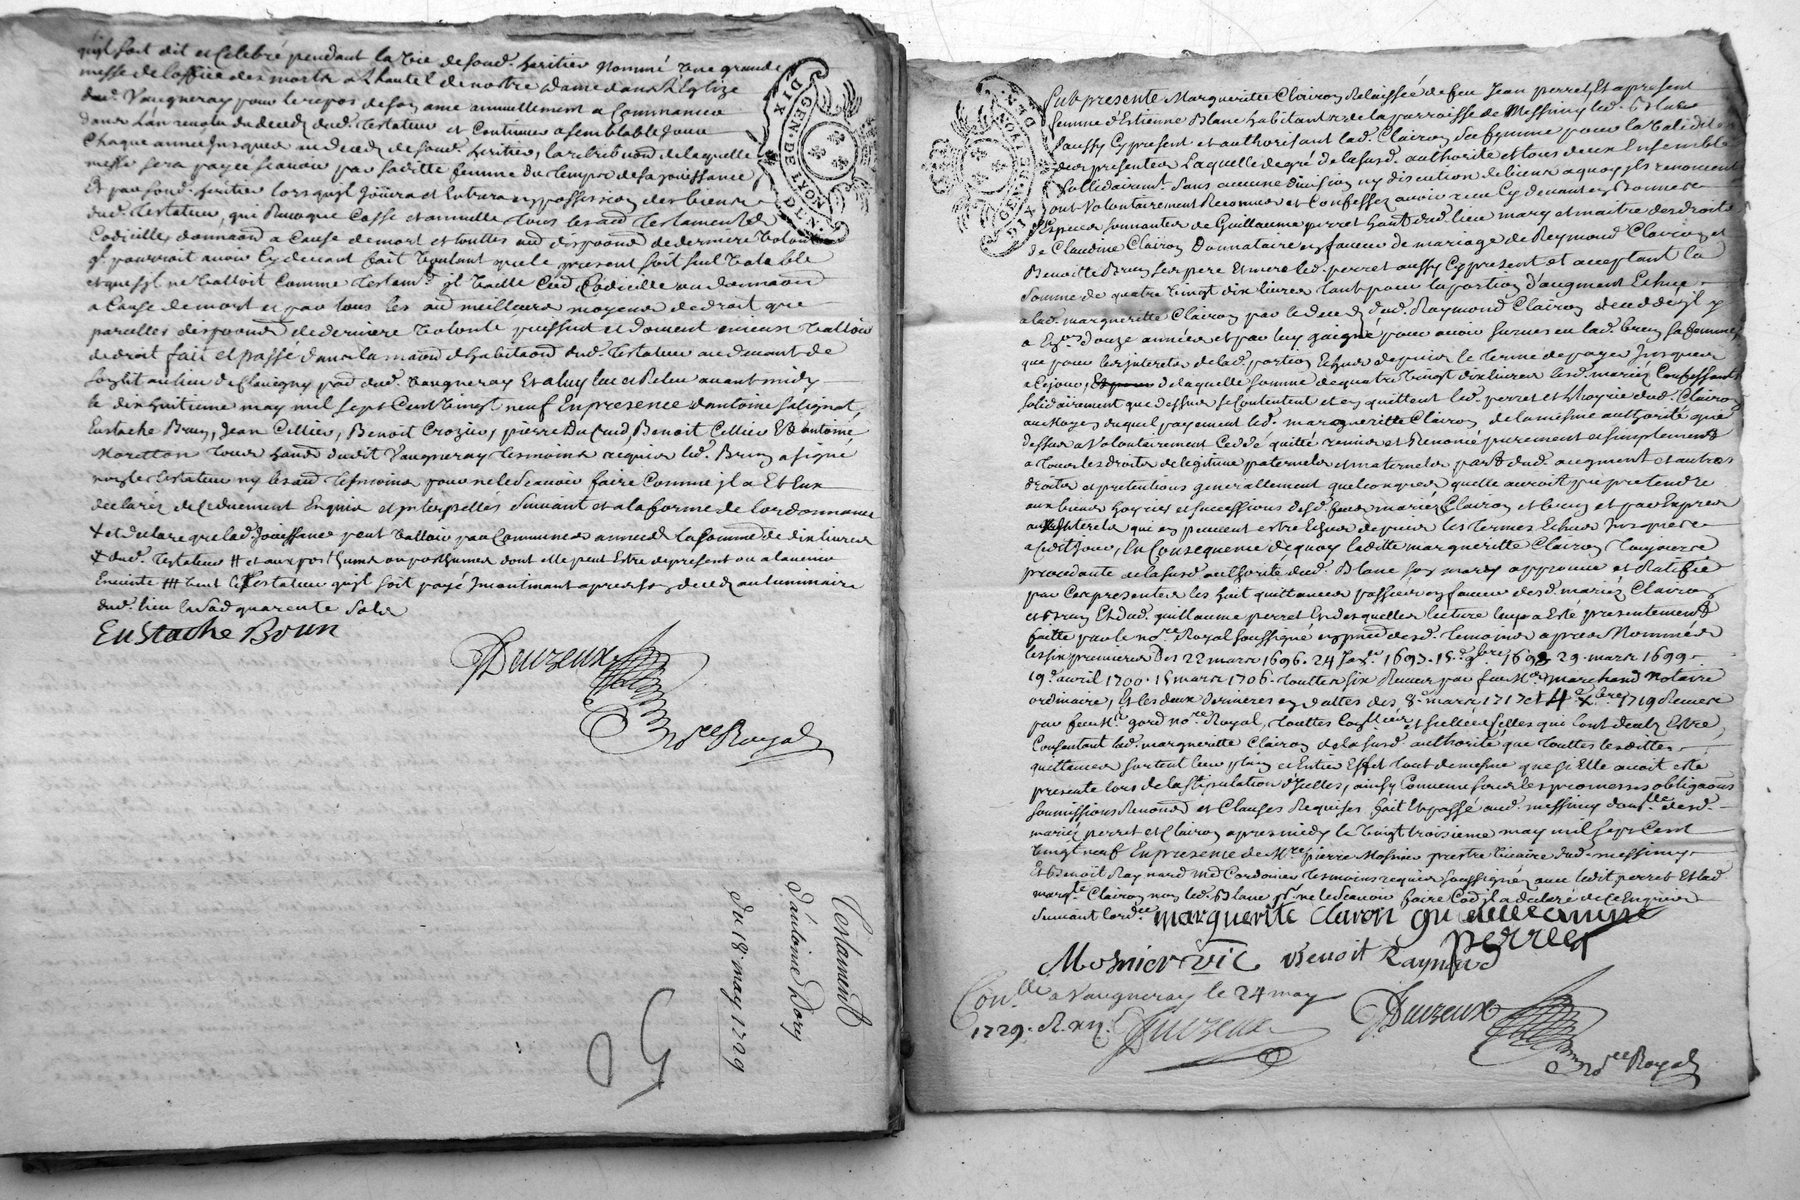 qu'il soit dit et celebré pendant la vie de sond. heritier nommé une grande
messe de l'office des morts a l'hautel de nostre dame dans l'Eglize
dud. Vaugneray pour le repos de son ame annuellement a commancer
dans l'an revolu du deceds dud. testateur et continuer a semblable jour
chaque année jusques au deceds de sond. heritier, la retribuon de laquelle
messe sera payée scavoir par laditte femme du temps de sa jouissance
Et par sond. heritier lors qu'il jouira et entrera en possession des biens
dud. testateur, qui revoque casse et annulle tous les au testaments
codicilles donnaons a cause de mort et touttes au dispoons de derniere volonté
qu'il pourroit avoir cy devant fait voulant que le present soit seul valable
et que s'il ne valloit comme testamt il vaille comme codicille ou donnaon
a cause de mort et par tous les au meilleurs moyens de droit que
pareilles dispoons de derniere volonté puissent et doivent mieux valloir
de droit fait et passé dans la maon d'habitaon dud. testateur au devant de
au lieu de parr dud. Vaugneray Et a luy leu et releu avant midy
le dix huitieme may mil sept cent vingt neuf En presence d'antoine salignat,
Eustache Brun, Jean Cellier, Benoit Crozier, pierre Benoit Cellier Et antoine
Moretton tous habts dudit Vaugneray tesmoins requis led. Brun a signé
non le testateur ny les au tesmoins pour ne le scavoir faire comme il a et eux
declaréz de ce duement enquis et interpellés suivant et a la forme de l'ordonnance
+ et declare que lad. jouissance peut valloir par communes années la somme de dix livres
+ dud. testateur # et aux posthume ou posthumes dont elle peut Estre de present ou a l'avenir
Enceinte ## veut le testateur qu'il soit payé incontinant apres son deceds au luminaire
dud. lieu la sud quarente sols
EuStache Brun
Deuzeux
no.re Royal
Testament
d'antoine Dory
du 18 may 1729
DIX
GEN. DE LYON
DEN.
Sub presente Margueritte Clairon Relaissée de feu Jean perret Et a present
femme d'Estienne Blanc habitante de la parroisse de Messimy led. Blanc
aussy cy present et authorisant lad. Clairon sa femme pour la validité
des presentes Laquelle de gré de la susd. authorité et tous deux Ensemble
sollidairemt sans aucune division ny discution de biens a quoy ils renoncent
ont volontairement Reconnu et Confessé avoir receu cy devant en bonnes
Especes sonnantes de Guillaume perret habt dud. lieu mary et maitre des droits
de Claudine Clairon Donnataire en faveur de mariage de Reymond Clairon et
Benoitte Brun ses pere Et mere led. perret aussy cy present et acceptant la
somme de quatre vingt dix livres tant pour la portion d'augment Echue
a lad. margueritte Clairon par le deceds dud. Raymond Clairon decedé il y
a Envon douze années et par luy gaigné pour avoir survescu lad. brun sa femme,
que pour les interets de lad. portion Echus depuis le terme de payer jusques
a ce jour, de laquelle somme de quatre vingt dix livres lesd. mariéz Confessants
solidairement que dessus se contentent et en quittent led. perret et l'hoyrie dud. Clairon
au moyen duquel payement lad. margueritte Clairon, de la mesme authorité que
dessus a volontairement ceddé quitté remis et Renoncé purement et simplement
a tous les droits de legitime paternels et maternels part dud. augment et autres
droits et pretentions generallement quelconques quelle auroit pu pretendre
aux biens hoyries et successions desd. feus mariéz Clairon et brun et par Exprez
aux interets qui en peuvent estre Echus depuis les termes Echus jusques
a cedit jour, En consequence de quoy laditte margueritte Clairon toujours
procedante de la susd. authorité dud. Blanc son mary approuve et Ratifie
par ces presentes les huit quittances passées en faveur desd. mariéz Clairon
et brun Et dud. guillaume perret desquelles lecture leur a Esté presentement
faitte par le nore Royal soussigné en presce desd. temoins apres Nomméz
les six premieres Des 22 mars 1696. 24 1697. 15 9bre 1698 29 mars 1699.
19e avril 1700. 15 mars 1706. touttes six Receues par feu Me marchand notaire
ordinaire, Et les deux dernieres en dattes des 8e mars 1717 et 4e xbre 1719 Receues
par feu Me gord nore Royal, touttes et scellées celles qui l'ont deub Estre,
Consentant lad. margueritte Clairon de la susd. authorité que touttes lesdittes
quittances sortent leur plain et Entier Effet tout de mesme que si Elle avoit esté
presente lors de la stipulation d'icelles, ainsy convenu sous les promesses obligaons
soumissions Renonons et Clauses Requises fait Et passé aud. messimy desd.
mariéz perret et Clairon apres midy le vingt troisieme may mil sept cent
vingt neuf En presence de Mre pierre Mosnier prestre vicaire dud. messimy
Et Benoit Raynard md Cordonier tesmoins requis soussignéz avec ledit perret Et lad.
margte Clairon non led. Blanc pr. ne le scavoir faire Comme il a declaré de ce Enquis
suivant l'ordce
marguerite clairon
perret
Mosnier vic Benoit Raynard
Con.lle a Vaugneray le 24 may
1729. R. xx s.
Deuzeux
Deuzeux
no.re Royal
DIX
GEN. DE LYON
DEN.